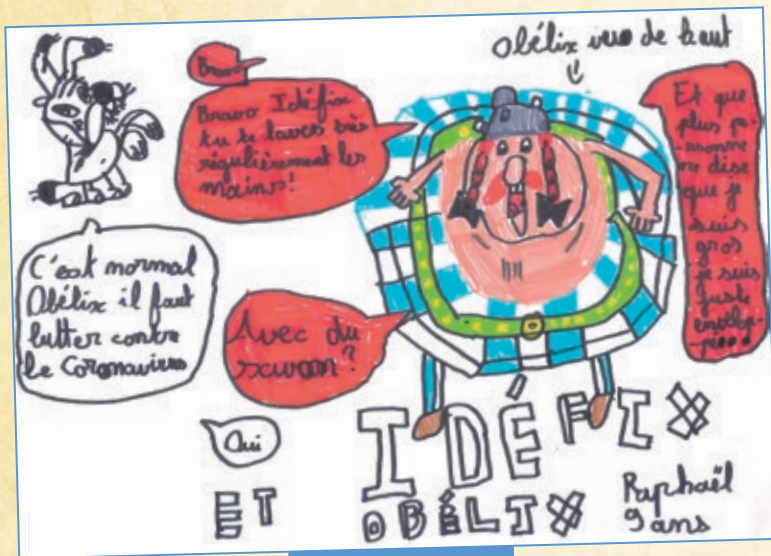 Obélix vue de haut
Bravo
Bravo Idéfix
tu te laves très
régulièrement les
mains!
Et que
plus pe-
rsonne
ne dise
que je
suis
gros
je suis
juste
envelop-
C'est normal
Obélix il faut
lutter contre
le Coronavirus
Avec du
savon?
Oui
IDÉFIX
ET
OBÉLIX
Raphaël
9 ans